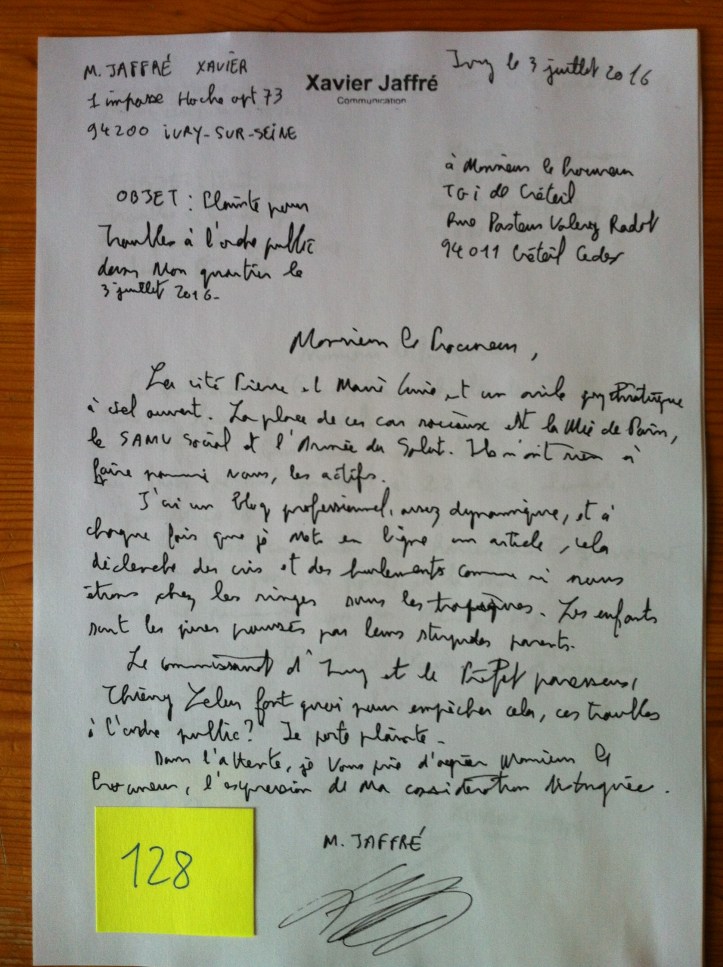 M. JAFFRÉ XAVIER
1 impasse Hoche apt 73
94200 IVRY-SUR-SEINE
Xavier Jaffré
Communication
Ivry le 3 juillet 2016
à Monsieur le Procureur
TGI de Créteil
Rue Pasteur Valery Radot
94011 Créteil Cedex
OBJET : Plainte pour
troubles à l'ordre public
dans mon quartier le
3 juillet 2016-
Monsieur le Procureur,
La cité Pierre et Marie Curie est un asile psychiatrique
à ciel ouvert. La place de ces cas sociaux est la rue de Paris,
le SAMU Social et l'Armée du Salut. Ils n'ont rien à
faire parmi nous, les actifs.
J'ai un blog professionnel, assez dynamique, et à
chaque fois que je mets en ligne un article, cela
déclenche des cris et des hurlements comme si nous
étions chez les singes sous les tropiques. Les enfants
sont les pires poussés par leurs stupides parents.
Le commissariat d'Ivry et le Préfet
Thierry Leleu font quoi pour empêcher cela, ces troubles
à l'ordre public? Je porte plainte-
Dans l'attente, je vous prie d'agréer Monsieur le
Procureur, l'expression de ma considération distinguée.
M. JAFFRÉ
128